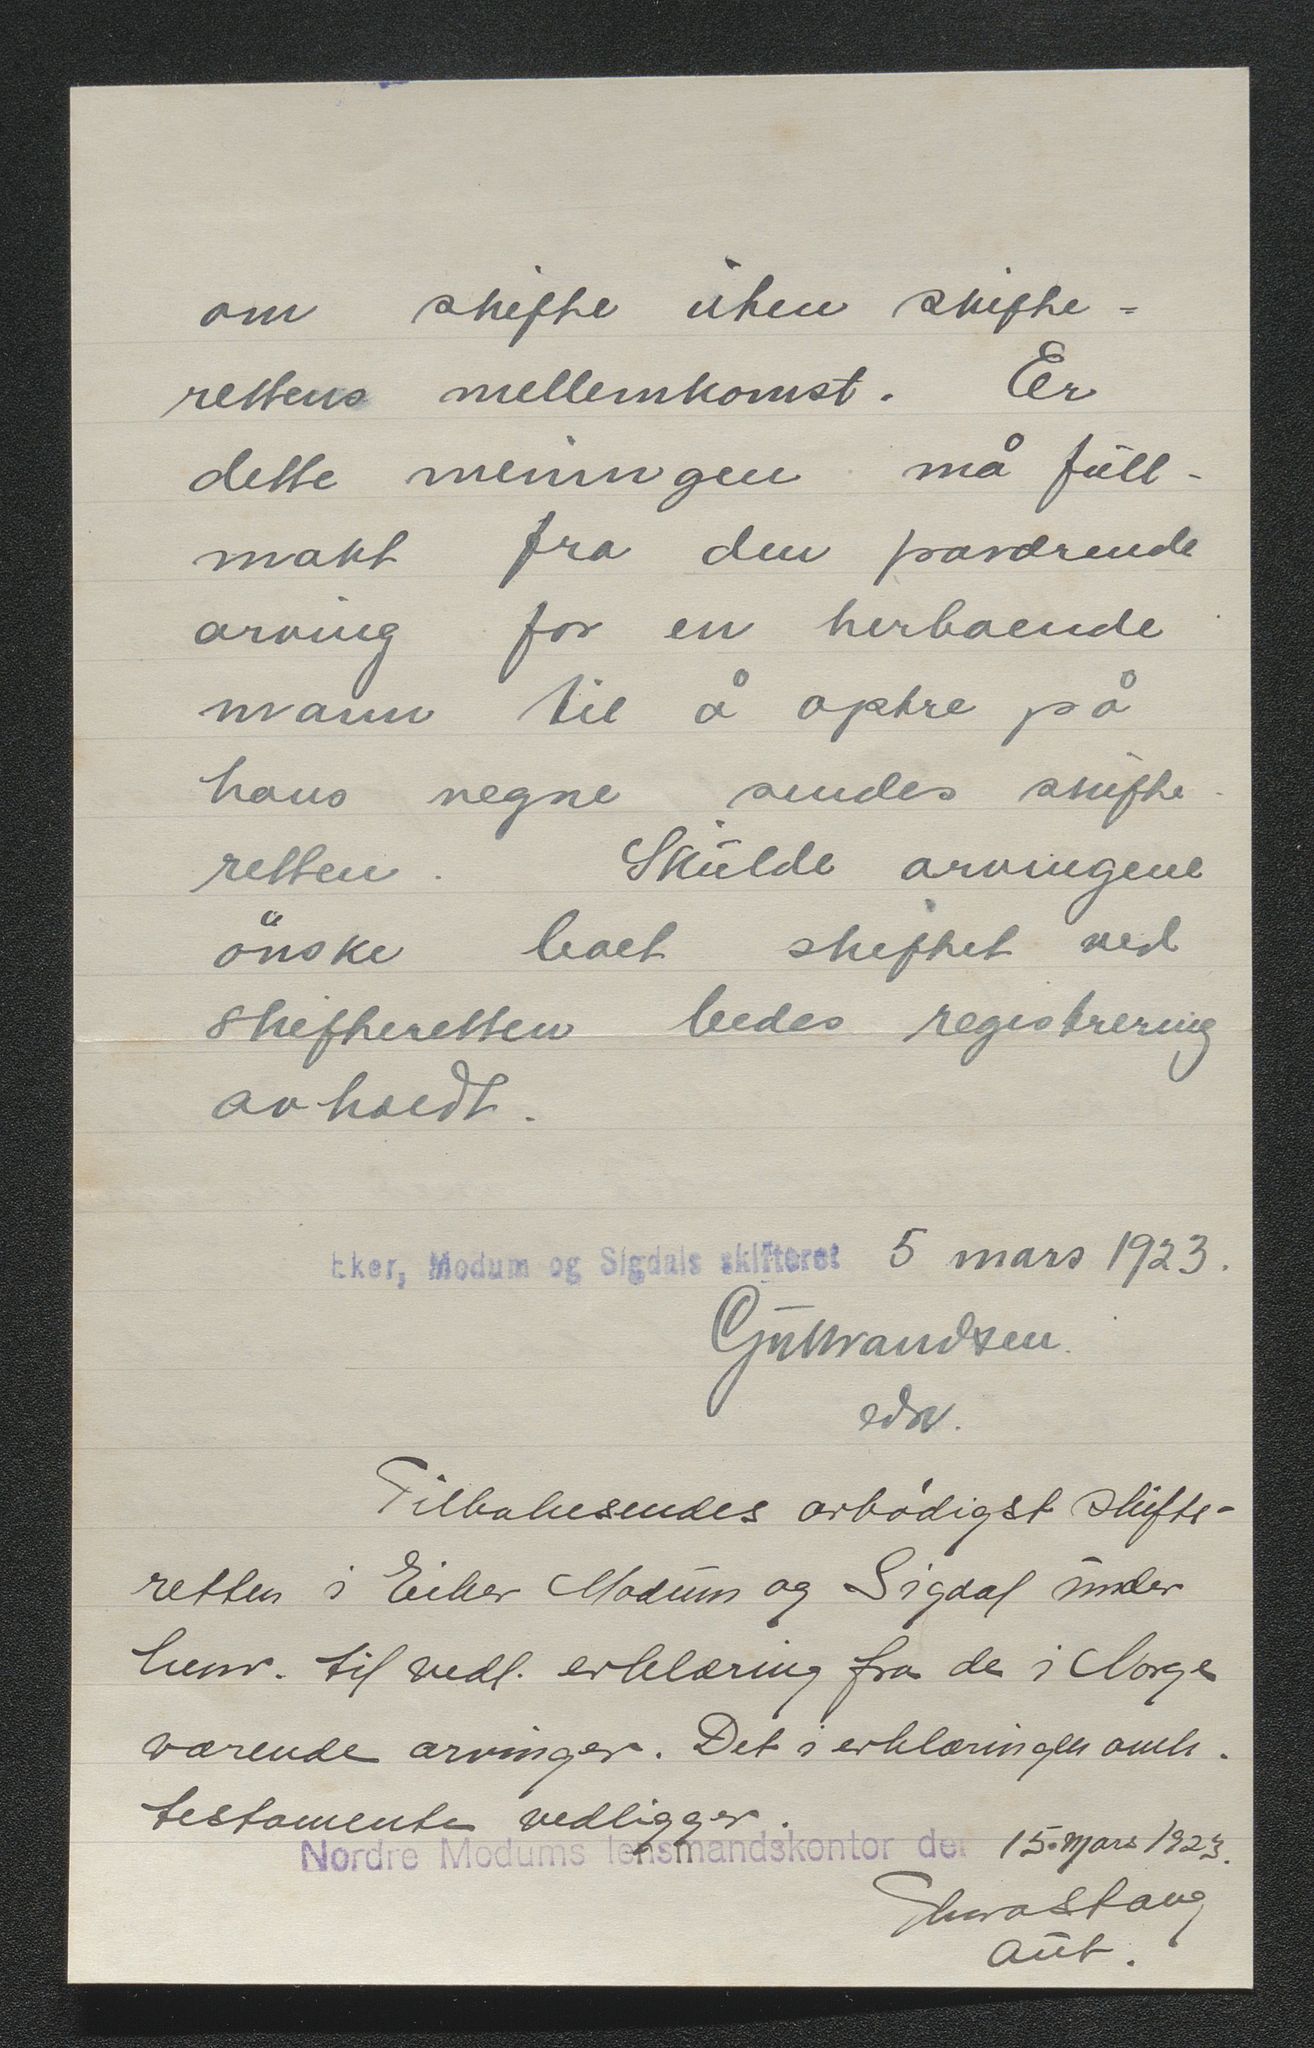 om skifte uten skifte-
rettens mellemkomst. Er
dette meningen må full-
makt fra den
arving for en herboende
mann til å optre på
hans vegne sendes skifte-
retten. Skulde arvingene
önske boet skiftet ved
skifteretten bedes registrering
avholdt.
Eker, Modum og Sigdals skifteret 5 mars 1923.
Gulbrandsen
Tilbakesendes ærbödigst skifte-
retten i Eiker Modum og Sigdal under
henv. til vedl. erklæring fra de i Norge
værende arvinger. Det i erklæringen omh.
testamente vedligger.
Nordre Modums lensmandskontor den 15. Mars 1923.
aut.